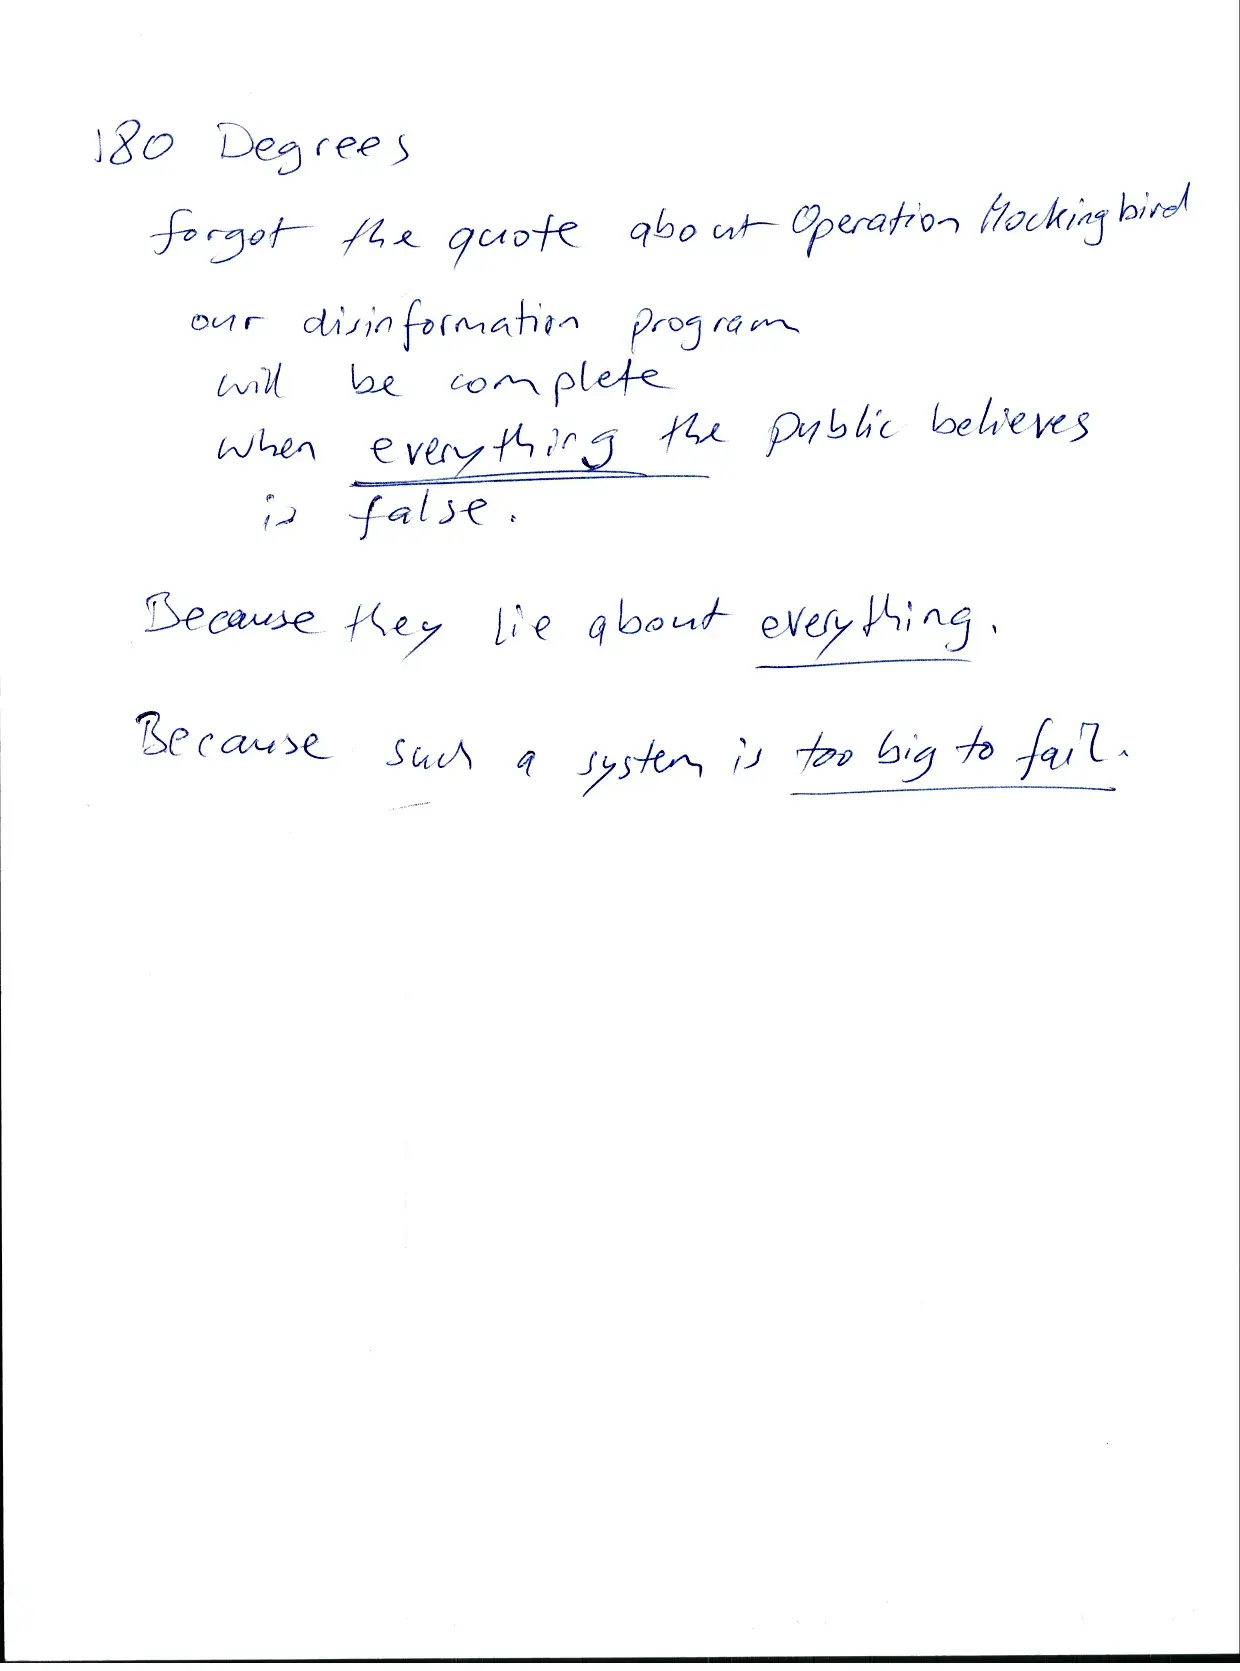 180 Degrees
forgot the quote about Operation Mockingbird
our disinformation program
will be complete
when everything the public believes
is false.
Because they lie about everything.
Because such a system is too big to fail.